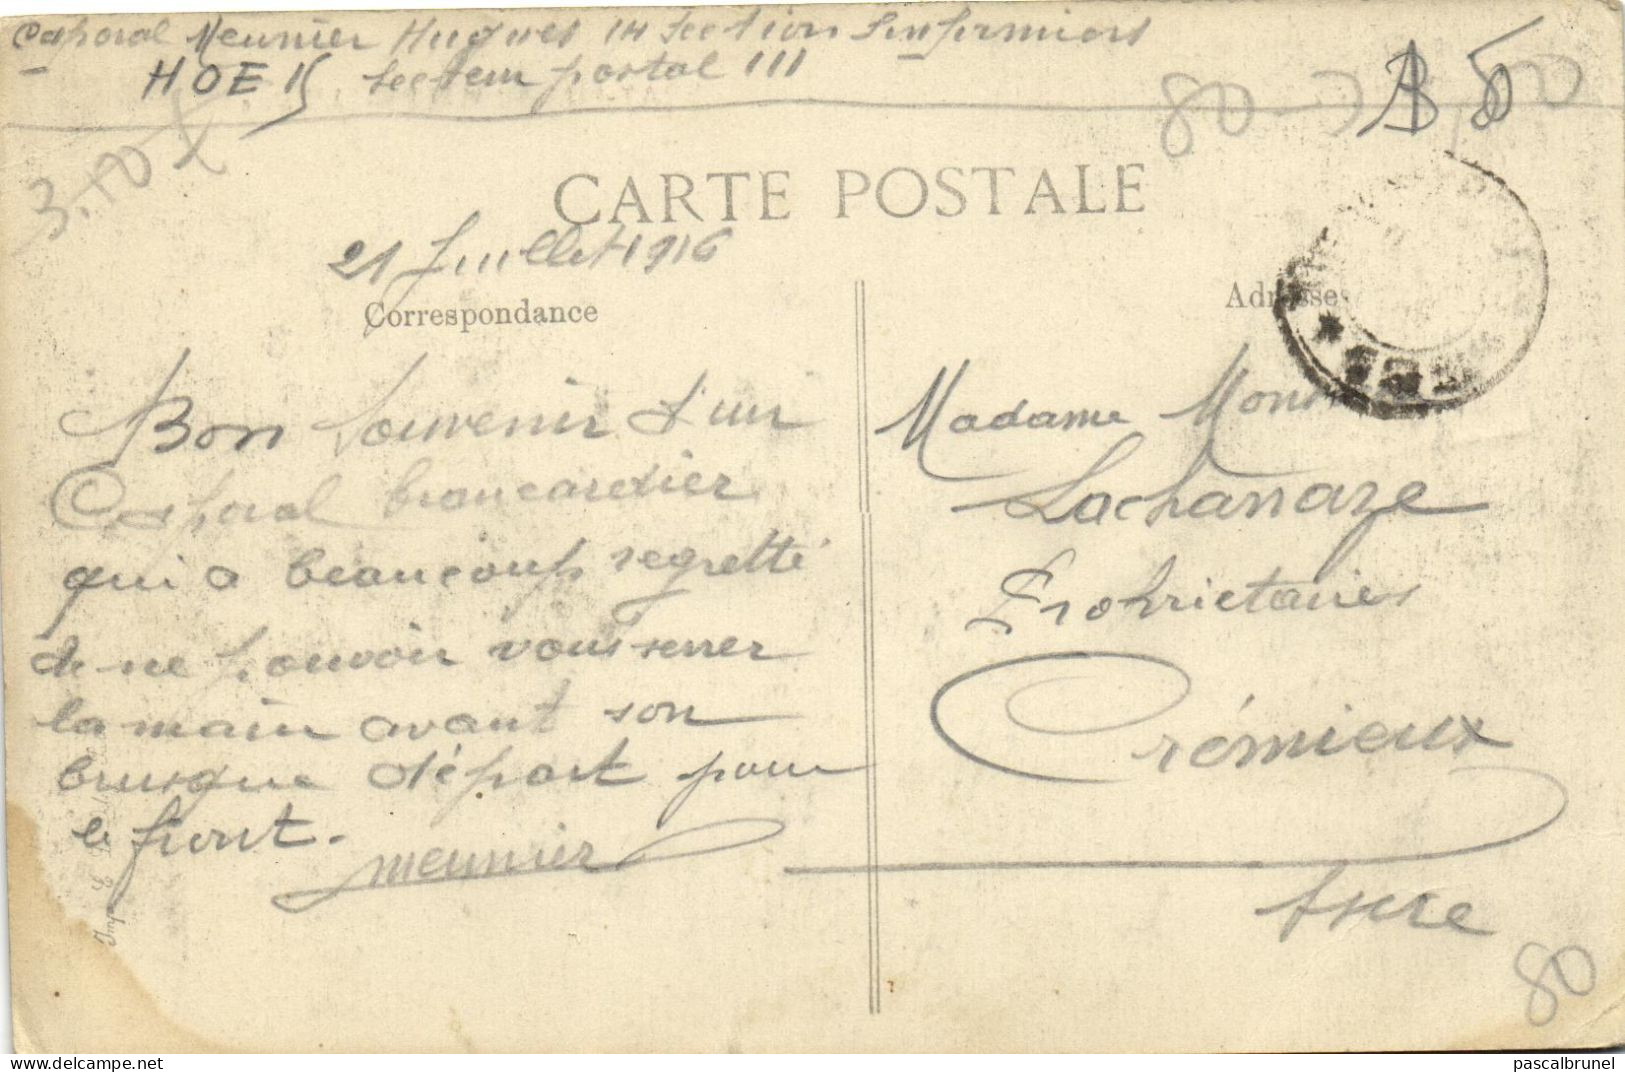 Caporal Meunier Hugues 14 Section Infirmiers
HOE 15 Secteur postal 111
80
3.10
CARTE POSTALE
21 Juillet 1916
Correspondance
Adresse
Bon Souvenir d'un
Caporal brancardier
qui a beaucoup regretté
de ne pouvoir vous serrer
la main avant son
brusque départ pour
le front.
Meunier
Madame
Lachanaze
Prohrietaires
Crémieux
Isere
80
Imp. E.
www.delcampe.net
pascalbrunel